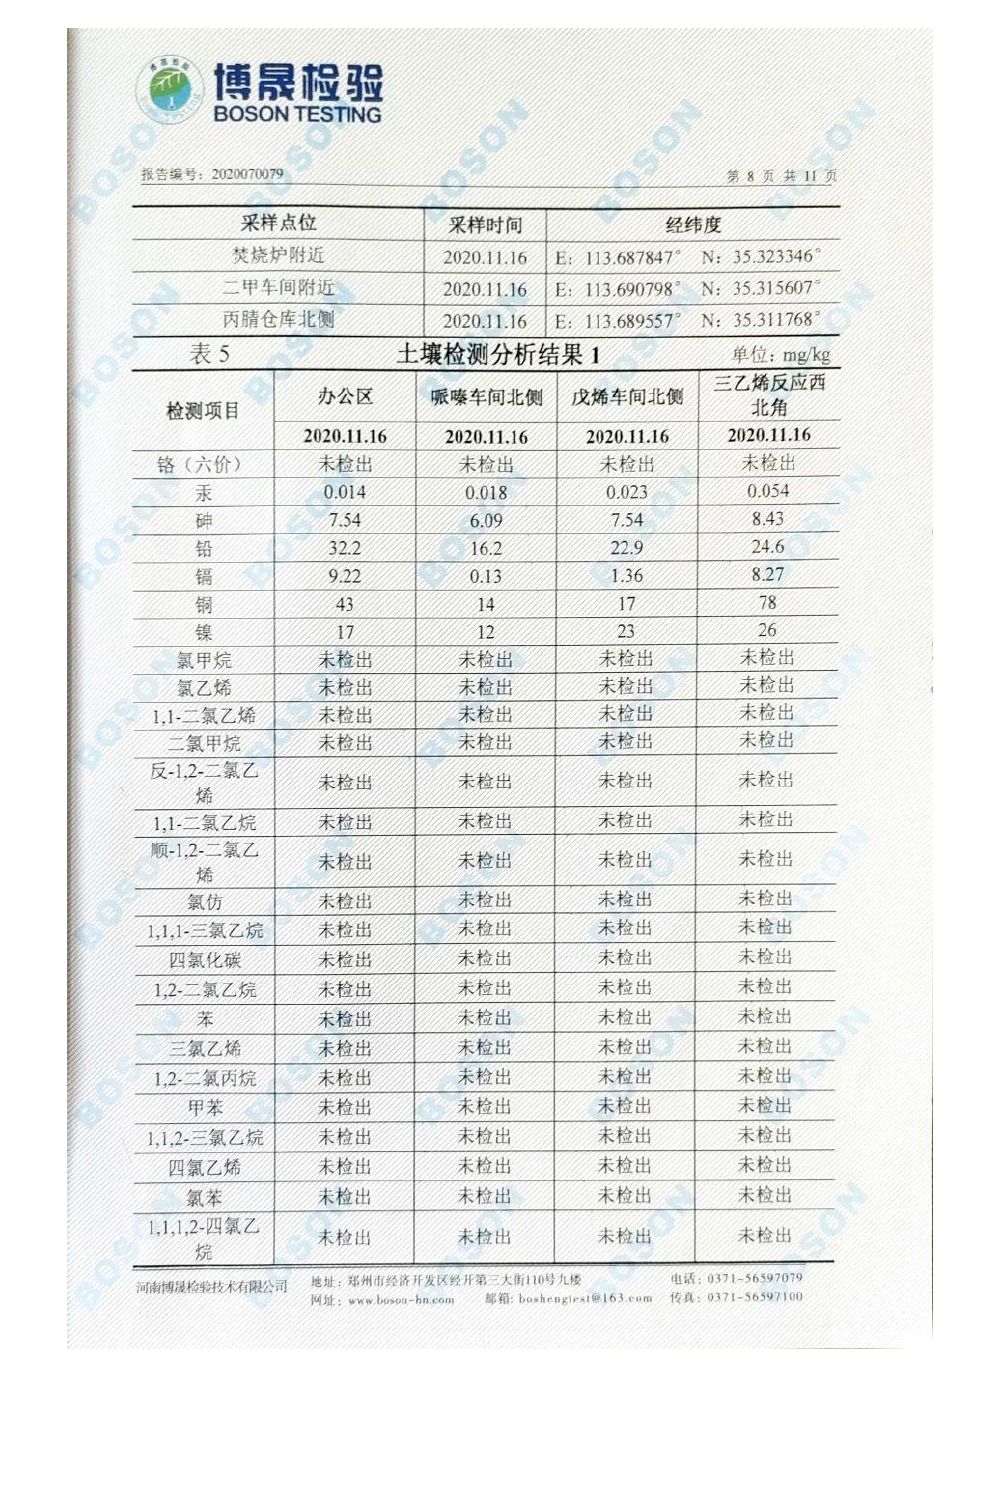 博晟检验
BOSON TESTING
报告编号：2020070079 第 8 页 共 11 页
采样点位 采样时间 经纬度
焚烧炉附近 2020.11.16 E：113.687847° N：35.323346°
二甲车间附近 2020.11.16 E：113.690798° N：35.315607°
丙腈仓库北侧 2020.11.16 E：113.689557° N：35.311768°
表 5 土壤检测分析结果 1 单位：mg/kg
检测项目 办公区 哌嗪车间北侧 戊烯车间北侧 三乙烯反应西
北角
2020.11.16 2020.11.16 2020.11.16 2020.11.16
铬（六价） 未检出 未检出 未检出 未检出
汞 0.014 0.018 0.023 0.054
砷 7.54 6.09 7.54 8.43
铅 32.2 16.2 22.9 24.6
镉 9.22 0.13 1.36 8.27
铜 43 14 17 78
镍 17 12 23 26
氯甲烷 未检出 未检出 未检出 未检出
氯乙烯 未检出 未检出 未检出 未检出
1,1-二氯乙烯 未检出 未检出 未检出 未检出
二氯甲烷 未检出 未检出 未检出 未检出
反-1,2-二氯乙
烯 未检出 未检出 未检出 未检出
1,1-二氯乙烷 未检出 未检出 未检出 未检出
顺-1,2-二氯乙
烯 未检出 未检出 未检出 未检出
氯仿 未检出 未检出 未检出 未检出
1,1,1-三氯乙烷 未检出 未检出 未检出 未检出
四氯化碳 未检出 未检出 未检出 未检出
1,2-二氯乙烷 未检出 未检出 未检出 未检出
苯 未检出 未检出 未检出 未检出
三氯乙烯 未检出 未检出 未检出 未检出
1,2-二氯丙烷 未检出 未检出 未检出 未检出
甲苯 未检出 未检出 未检出 未检出
1,1,2-三氯乙烷 未检出 未检出 未检出 未检出
四氯乙烯 未检出 未检出 未检出 未检出
氯苯 未检出 未检出 未检出 未检出
1,1,1,2-四氯乙
烷 未检出 未检出 未检出 未检出
河南博晟检验技术有限公司 地址：郑州市经济开发区经开第三大街110号九楼 电话：0371-56597079
网址：www.boson-hn.com 邮箱：boshengtest@163.com 传真：0371-56597100